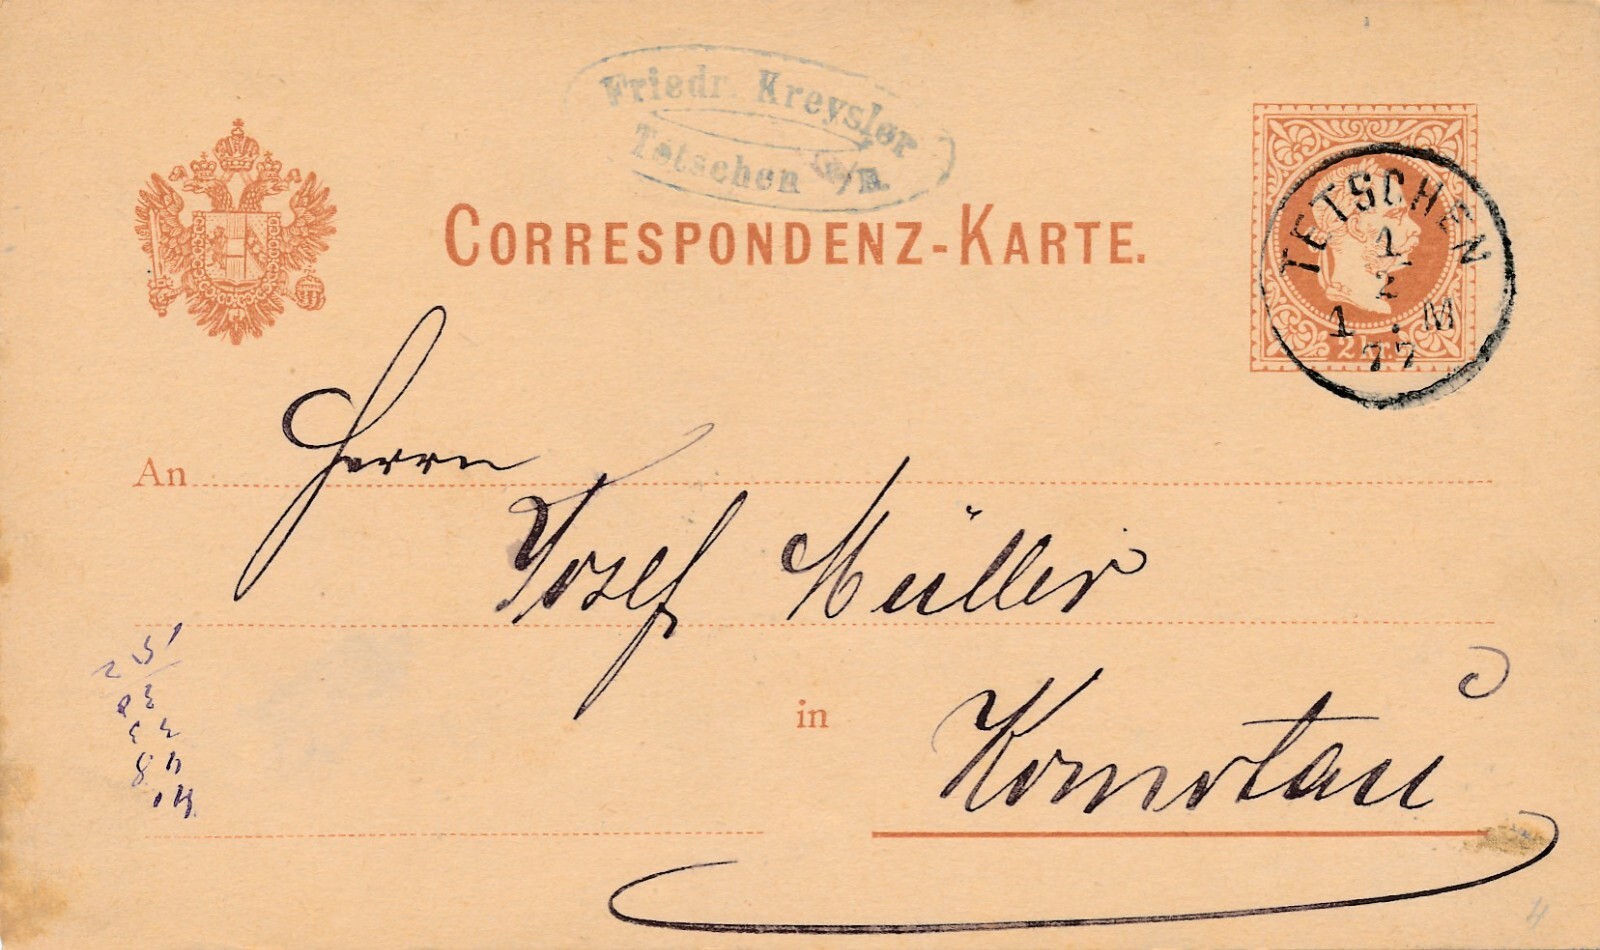 Friedr. Kreysler
Tetschen a/E.
CORRESPONDENZ-KARTE.
TETSCHEN
1
2
1 . M
77
2 kr.
An Herrn
Josef Müller
in Komotau